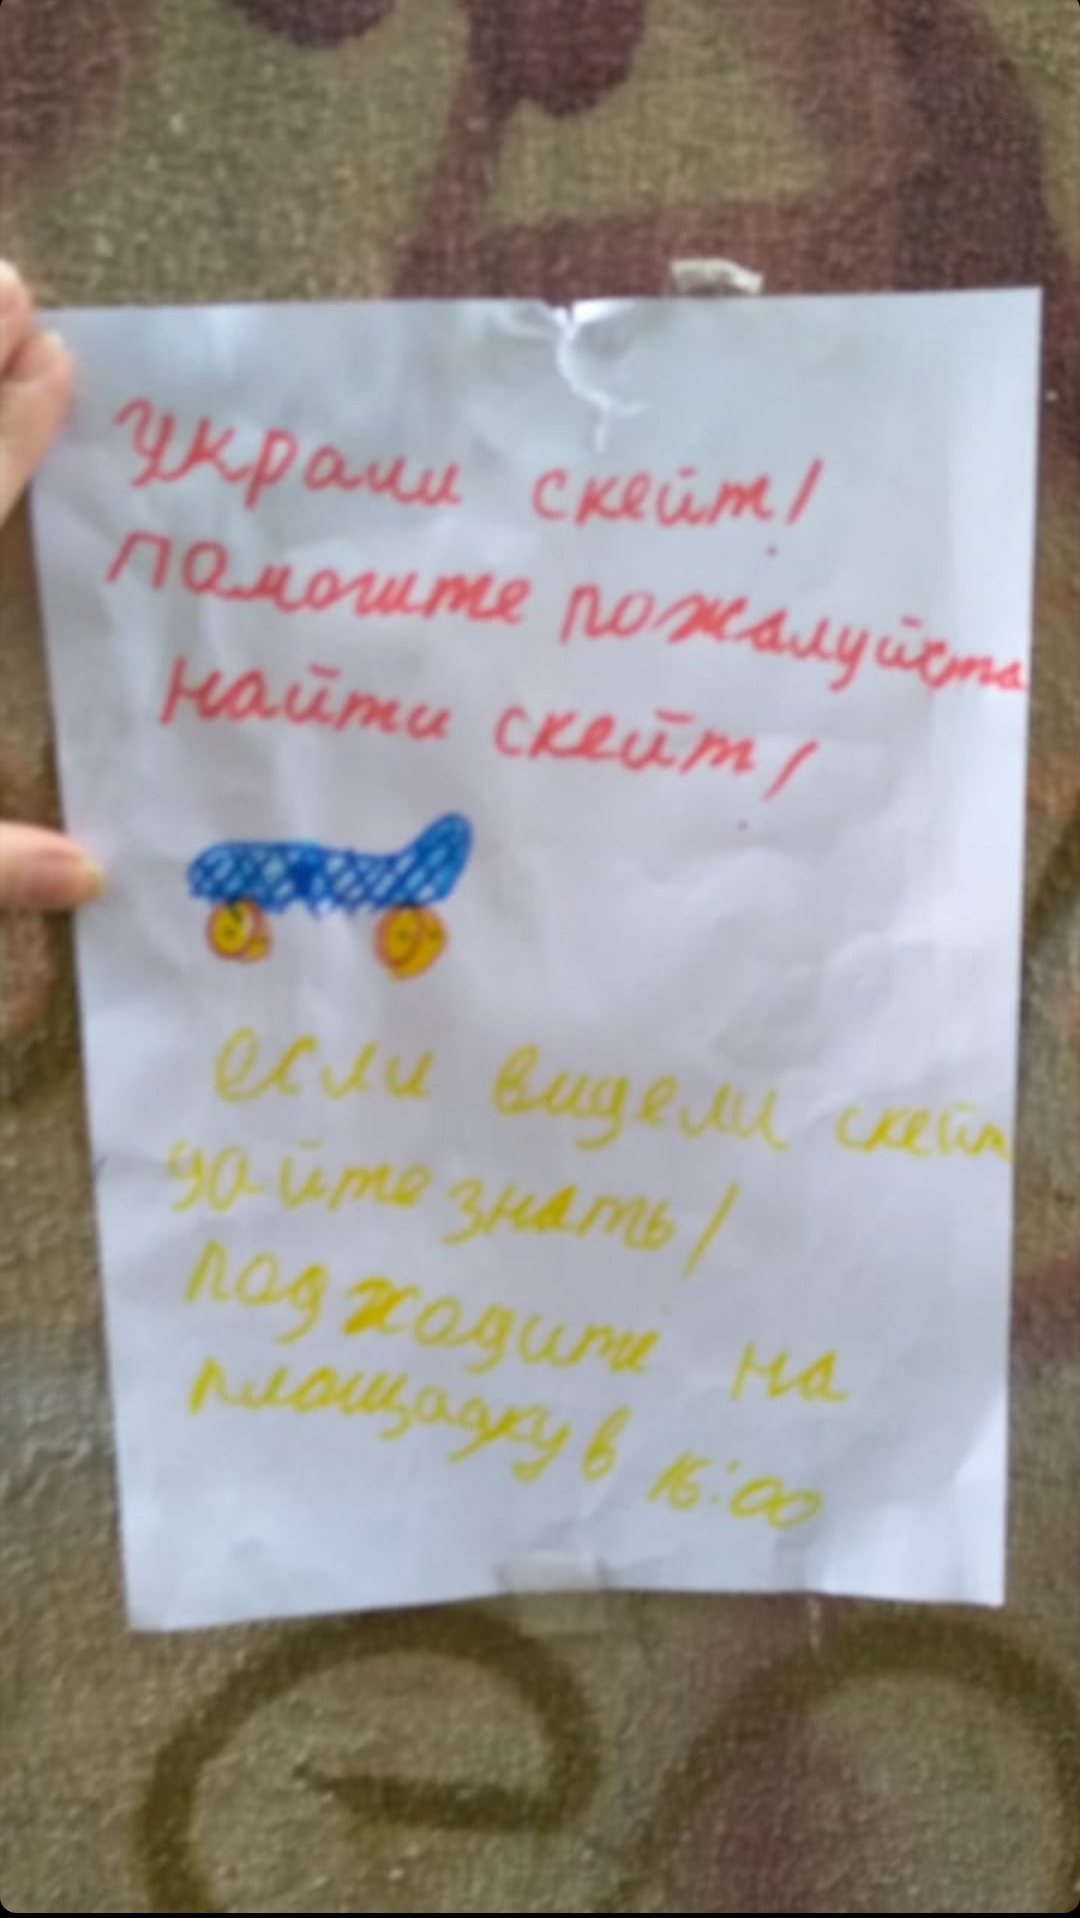 украли скейт!
памогите пожалуйста
найти скейт!
если видели скейт
дайте знать!
подходите на
площадку в 16:00